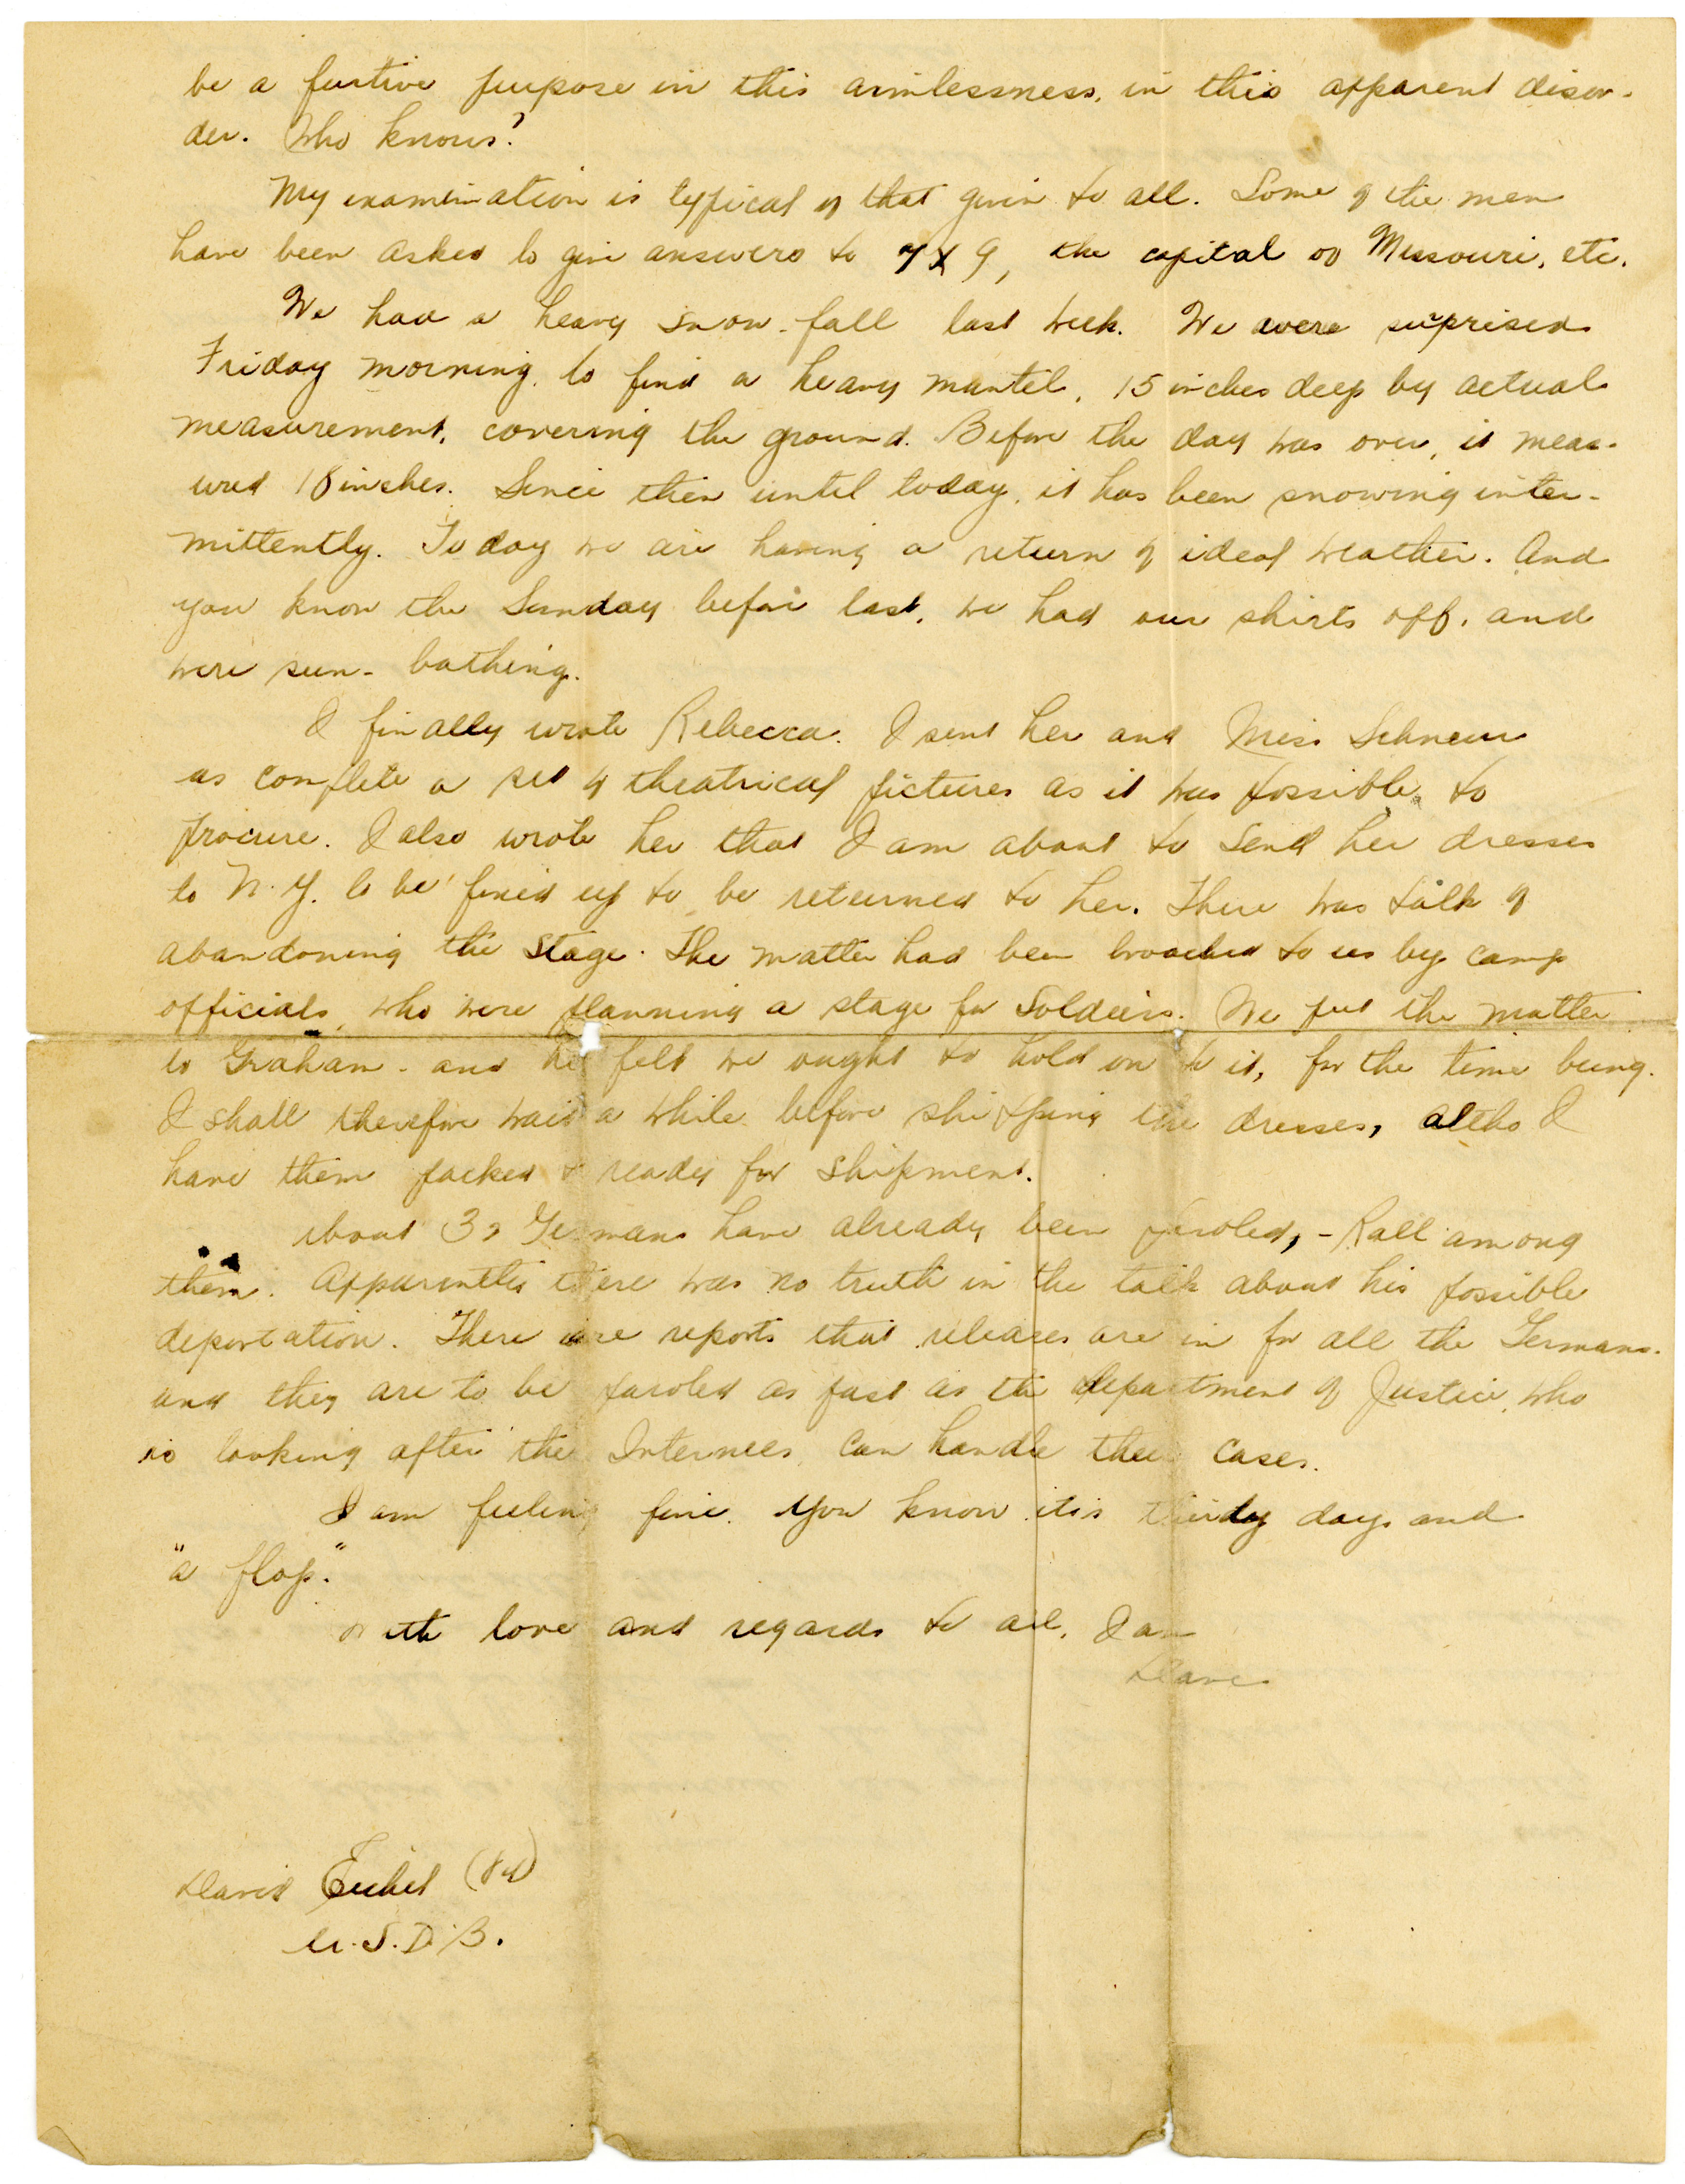 be a furtive purpose in this aimlessness, in this apparent disor-
der. Who knows?
My examination is typical of that given to all. Some of the men
have been asked to give answers to 7 x 9, the capital of Missouri, etc.
We had a heavy snow-fall last week. We were surprised
Friday morning, to find a heavy mantel, 15 inches deep by actual
measurement, covering the ground. Before the day was over, it meas-
ured 18 inches. Since then until today, it has been snowing inter-
mittently. Today we are having a return of ideal weather. And
you know the Sunday before last, we had our shirts off, and
were sun-bathing.
I finally wrote Rebecca. I sent her and Miss
as complete a set of theatrical pictures as it was possible to
procure. I also wrote her that I am about to send her dresses
to N.Y. to be fixed up to be returned to her. There was talk of
abandoning the stage. The matter had been broached to us by camp
officials, who were planning a stage for soldiers. We put the matter
to Graham - and he felt we ought to hold on to it, for the time being.
I shall therefore wait a while before shipping the dresses, altho I
have them packed & ready for shipment.
About Germans have already been paroled, - Rall among
them. Apparently there was no truth in the talk about his possible
deportation. There are reports that releases are in for all the Germans.
and they are to be paroled as fast as the department of Justice, who
is looking after the Internees, can handle their cases.
I am feeling fine. You know it is thirty days and
"a flop."
With love and regards to all, I am
Dave
David Eichel (84)
U.S.D.B.